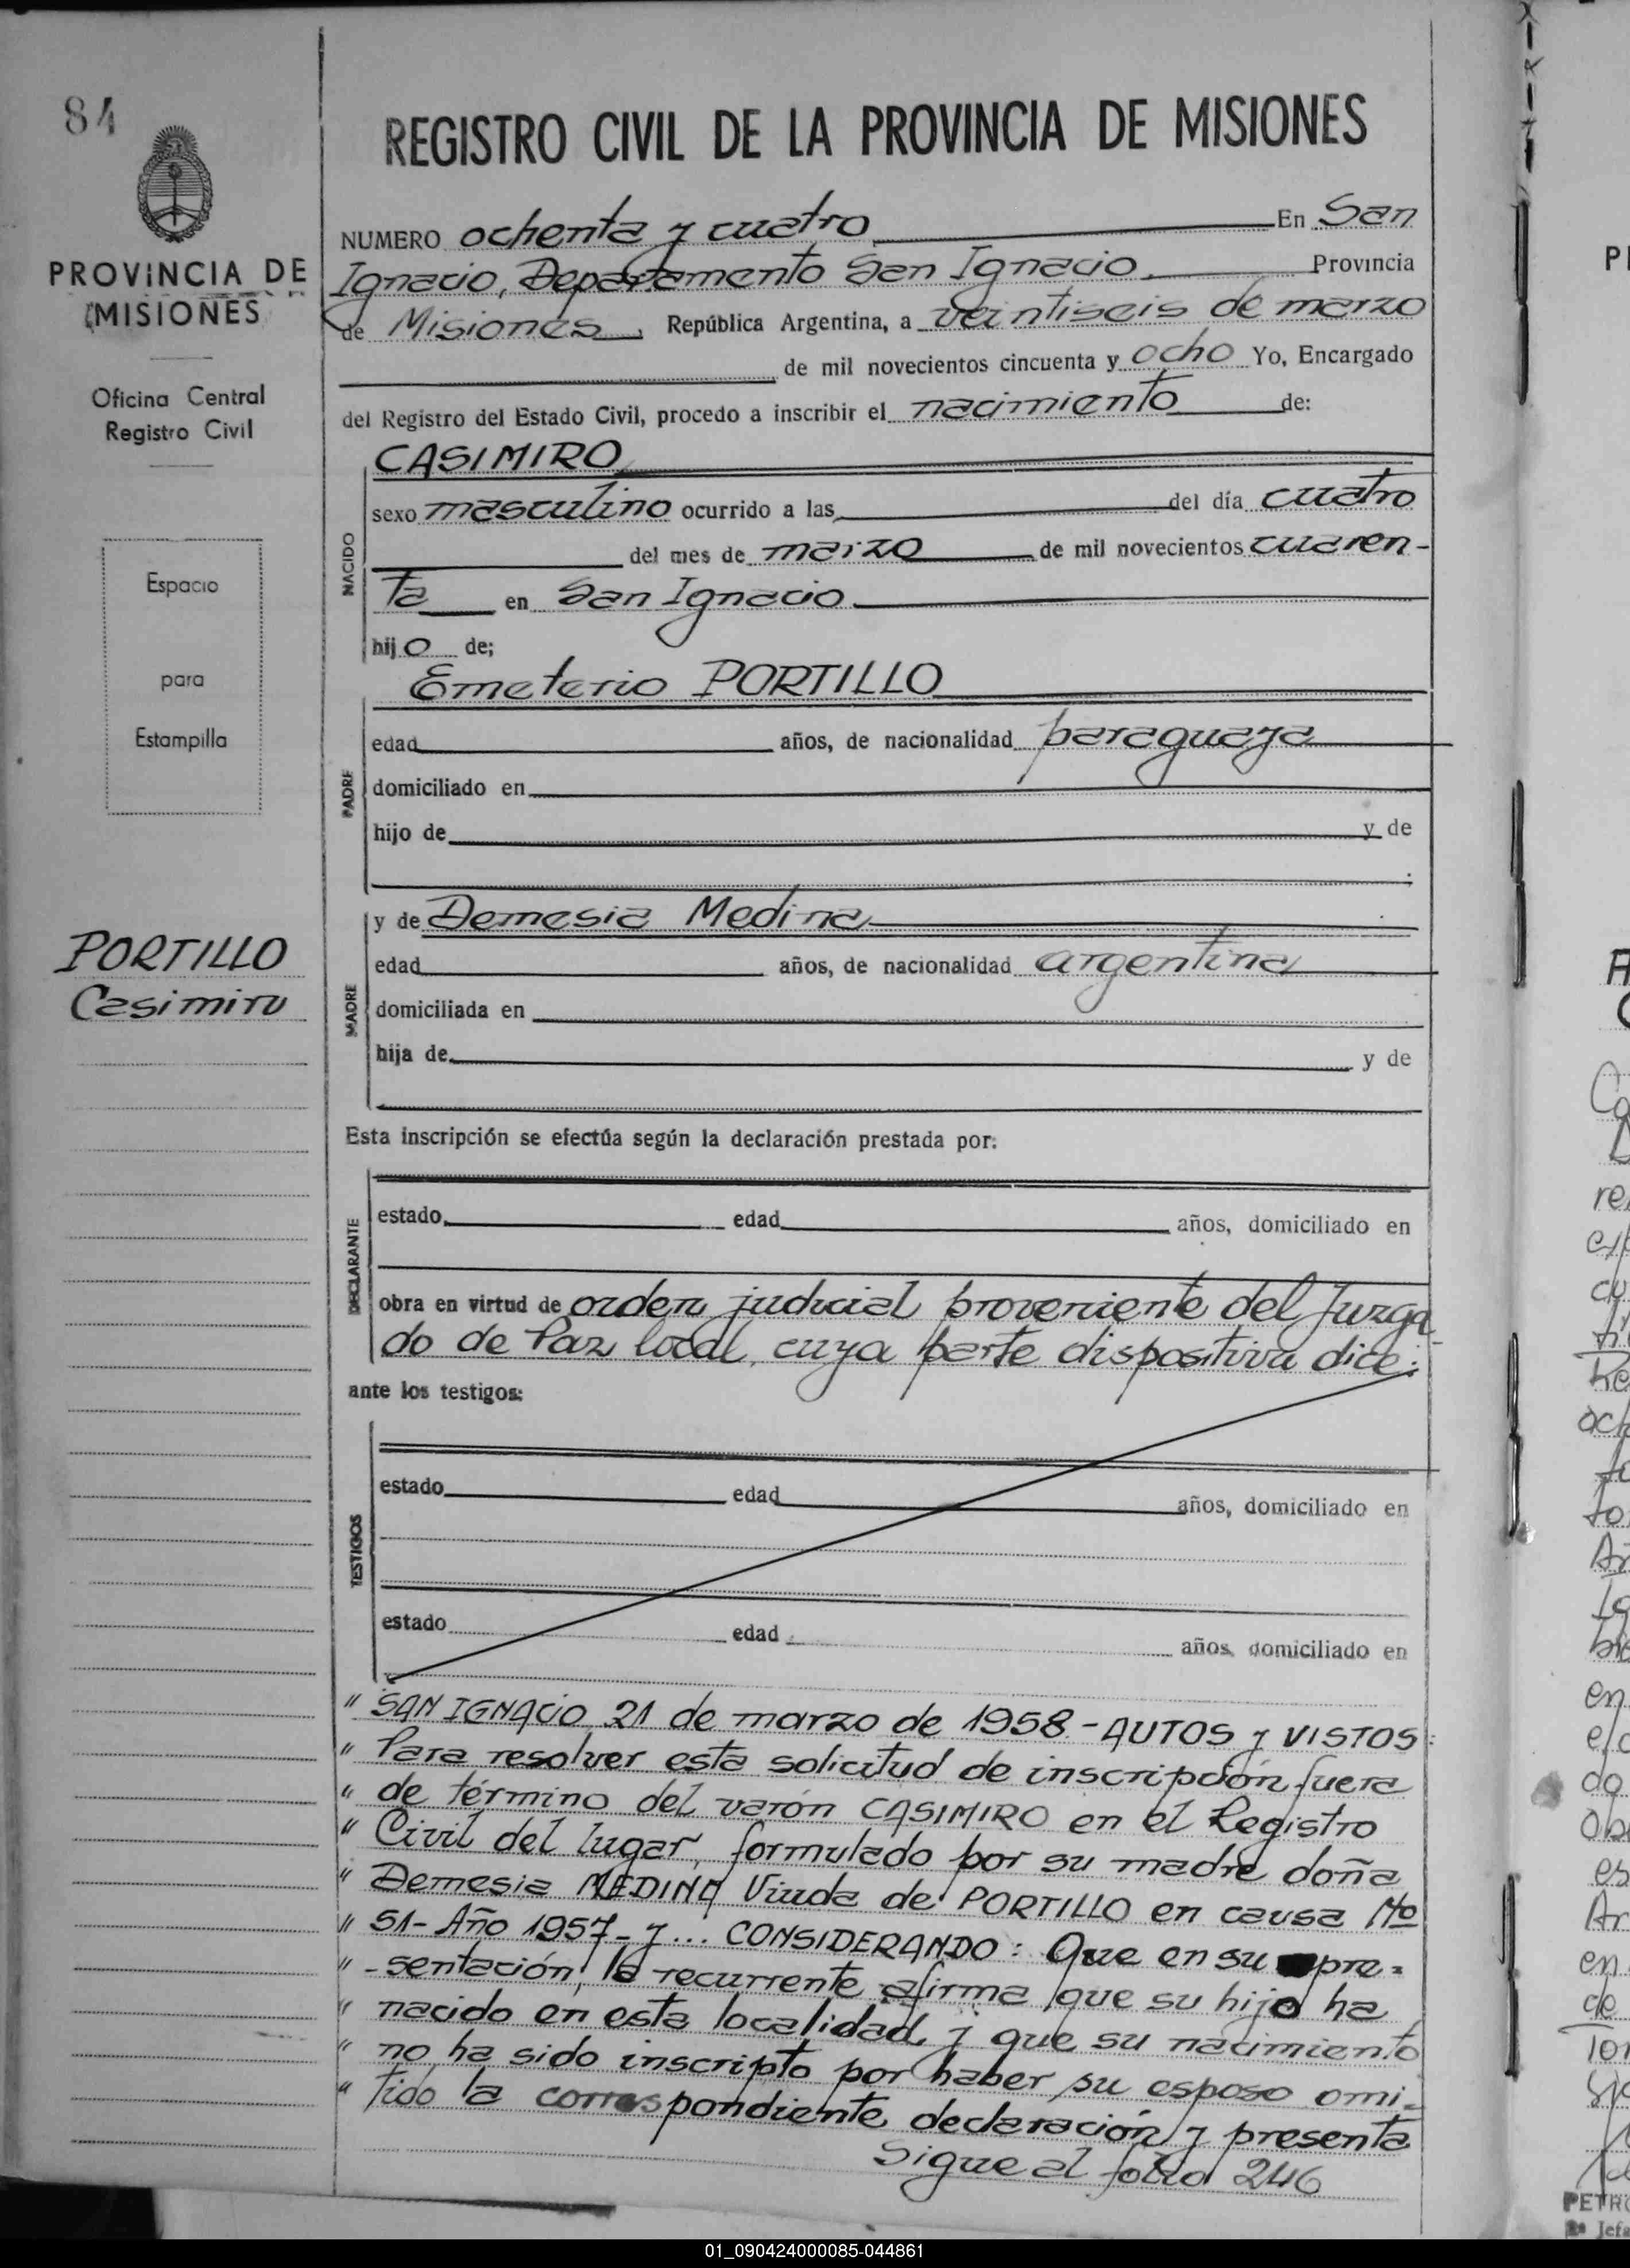 84
PROVINCIA DE
MISIONES
Oficina Central
Registro Civil
Espacio
para
Estampilla
PORTILLO
Casimiro
REGISTRO CIVIL DE LA PROVINCIA DE MISIONES
NUMERO ochenta y cuatro En San
Ignacio, Departamento San Ignacio Provincia
de Misiones, República Argentina, a veintiseis de marzo
de mil novecientos cincuenta y ocho Yo, Encargado
del Registro del Estado Civil, procedo a inscribir el nacimiento de:
NACIDO
CASIMIRO
sexo masculino ocurrido a las del día cuatro
del mes de marzo de mil novecientos cuaren-
ta en San Ignacio
hijo de;
PADRE
Emeterio PORTILLO
edad años, de nacionalidad paraguaya
domiciliado en
hijo de y de
MADRE
y de Demesia Medina
edad años, de nacionalidad argentina
domiciliada en
hija de y de
Esta inscripción se efectúa según la declaración prestada por:
DECLARANTE
estado edad años, domiciliado en
obra en virtud de orden judicial proveniente del Juzga
do de Paz local, cuya parte dispositiva dice:
ante los testigos:
TESTIGOS
estado edad años, domiciliado en
estado edad años, domiciliado en
" SAN IGNACIO, 21 de marzo de 1958.- AUTOS y VISTOS:
" Para resolver esta solicitud de inscripción fuera
" de término del varón CASIMIRO en el Registro
" Civil del lugar, formulado por su madre doña
" Demesia MEDINA Viuda de PORTILLO en causa Nº
" 51- Año 1957- y ... CONSIDERANDO: Que en su pre-
" -sentación, la recurrente afirma que su hijo ha
" nacido en esta localidad, y que su nacimiento
" no ha sido inscripto por haber su esposo omi-
" tido la correspondiente declaración y presenta
Sigue al folio 246
PETR
Jefe
01_090424000085-044861